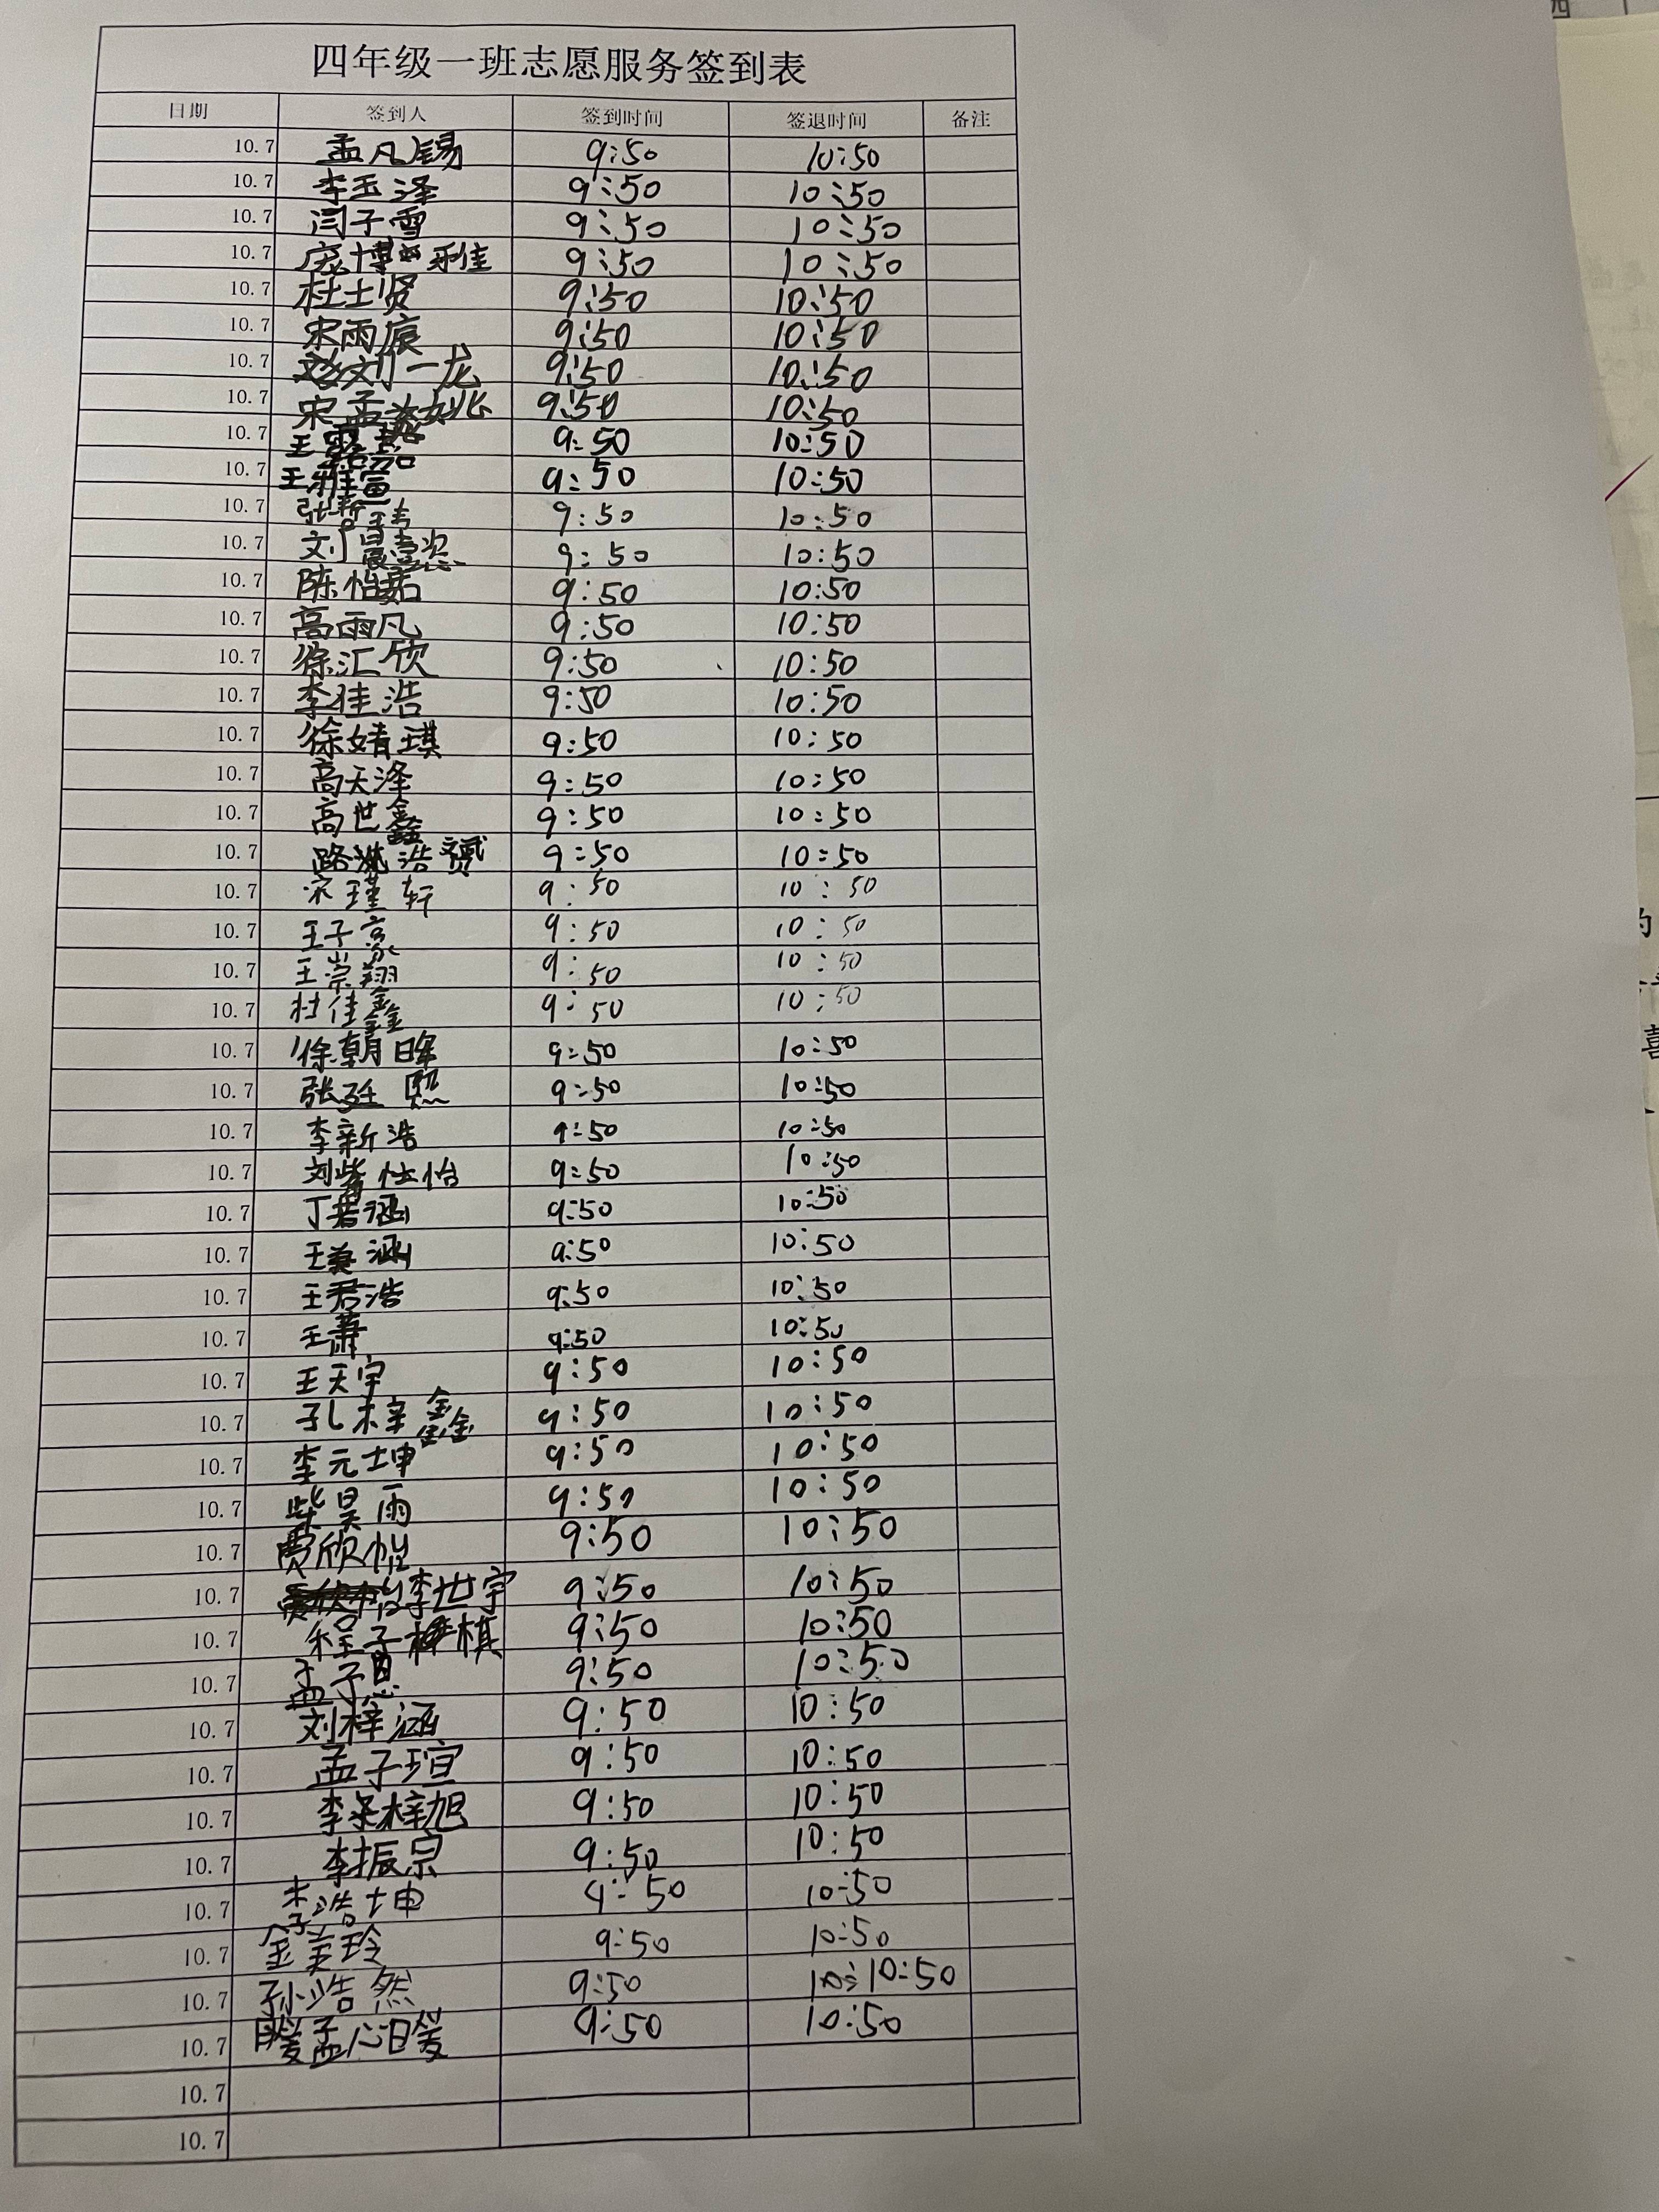 四年级一班志愿服务签到表
日期 签到人 签到时间 签退时间 备注
10.7 孟凡锡 9:50 10:50
10.7 李玉泽 9:50 10:50
10.7 闫子雪 9:50 10:50
10.7 庞博雅 9:50 10:50
10.7 杜士贤 9:50 10:50
10.7 宋雨宸 9:50 10:50
10.7 刘一龙 9:50 10:50
10.7 宋孟姚 9:50 10:50
10.7 王 9:50 10:50
10.7 王雅富 9:50 10:50
10.7 张 9:50 10:50
10.7 刘 9:50 10:50
10.7 陈怡茹 9:50 10:50
10.7 高雨凡 9:50 10:50
10.7 徐汇欣 9:50 10:50
10.7 李佳浩 9:50 10:50
10.7 徐婧琪 9:50 10:50
10.7 高天泽 9:50 10:50
10.7 高世鑫 9:50 10:50
10.7 路浩赟 9:50 10:50
10.7 宋瑾轩 9:50 10:50
10.7 王子豪 9:50 10:50
10.7 王崇翔 9:50 10:50
10.7 杜佳鑫 9:50 10:50
10.7 徐朝晖 9:50 10:50
10.7 张廷熙 9:50 10:50
10.7 李新浩 9:50 10:50
10.7 刘紫怡 9:50 10:50
10.7 丁若涵 9:50 10:50
10.7 王美涵 9:50 10:50
10.7 王君浩 9:50 10:50
10.7 王萧 9:50 10:50
10.7 王天宇 9:50 10:50
10.7 孔梓鑫 9:50 10:50
10.7 李元坤 9:50 10:50
10.7 柴昊雨 9:50 10:50
10.7 贾欣 9:50 10:50
10.7 李世宇 9:50 10:50
10.7 程子棋 9:50 10:50
10.7 孟子恩 9:50 10:50
10.7 刘梓涵 9:50 10:50
10.7 孟子瑄 9:50 10:50
10.7 李梓旭 9:50 10:50
10.7 李振宗 9:50 10:50
10.7 李浩坤 9:50 10:50
10.7 金美玲 9:50 10:50
10.7 孙浩然 9:50 10:50
10.7 孟心暖 9:50 10:50
10.7
10.7